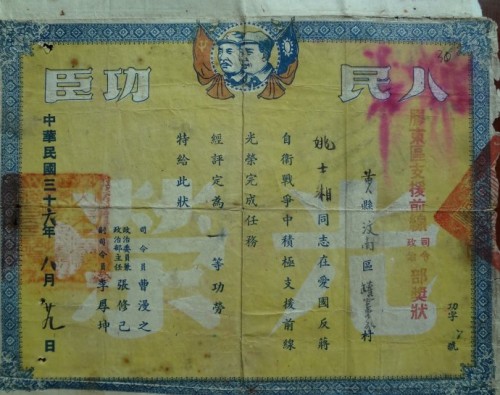 人民功臣
光榮
膠東區支援前線司令政治部獎狀
功字 號
黃縣 區 村
姚士湘同志在愛國反蔣
自衛戰爭中積極支援前線
光榮完成任務
經評定為一等功勞
特給此狀
司令員 曹漫之
政治委員兼
政治部主任 張修己
副司令員 李
中華民國三十六年八月廿九日